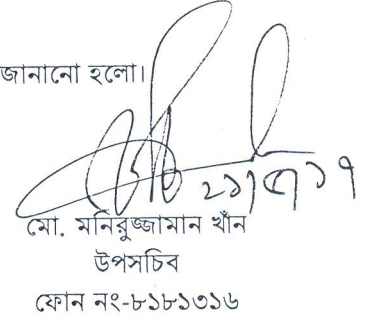 জানানো হলো।
মো. মনিরুজ্জামান খাঁন
উপসচিব
ফোন নং-৮১৮১৩১৬